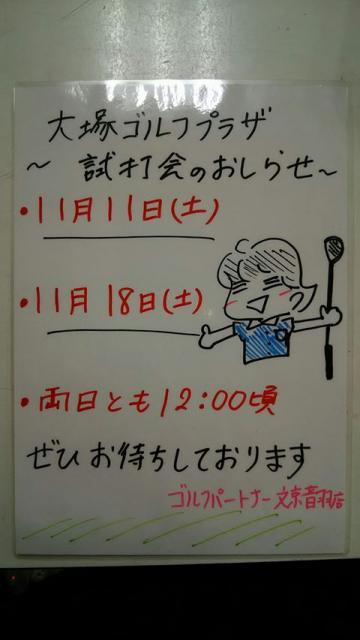 大塚ゴルフプラザ
～ 試打会のおしらせ～
・11月11日(土)
・11月18日(土)
・両日とも12:00頃
ぜひお待ちしております
ゴルフパートナー文京音羽店